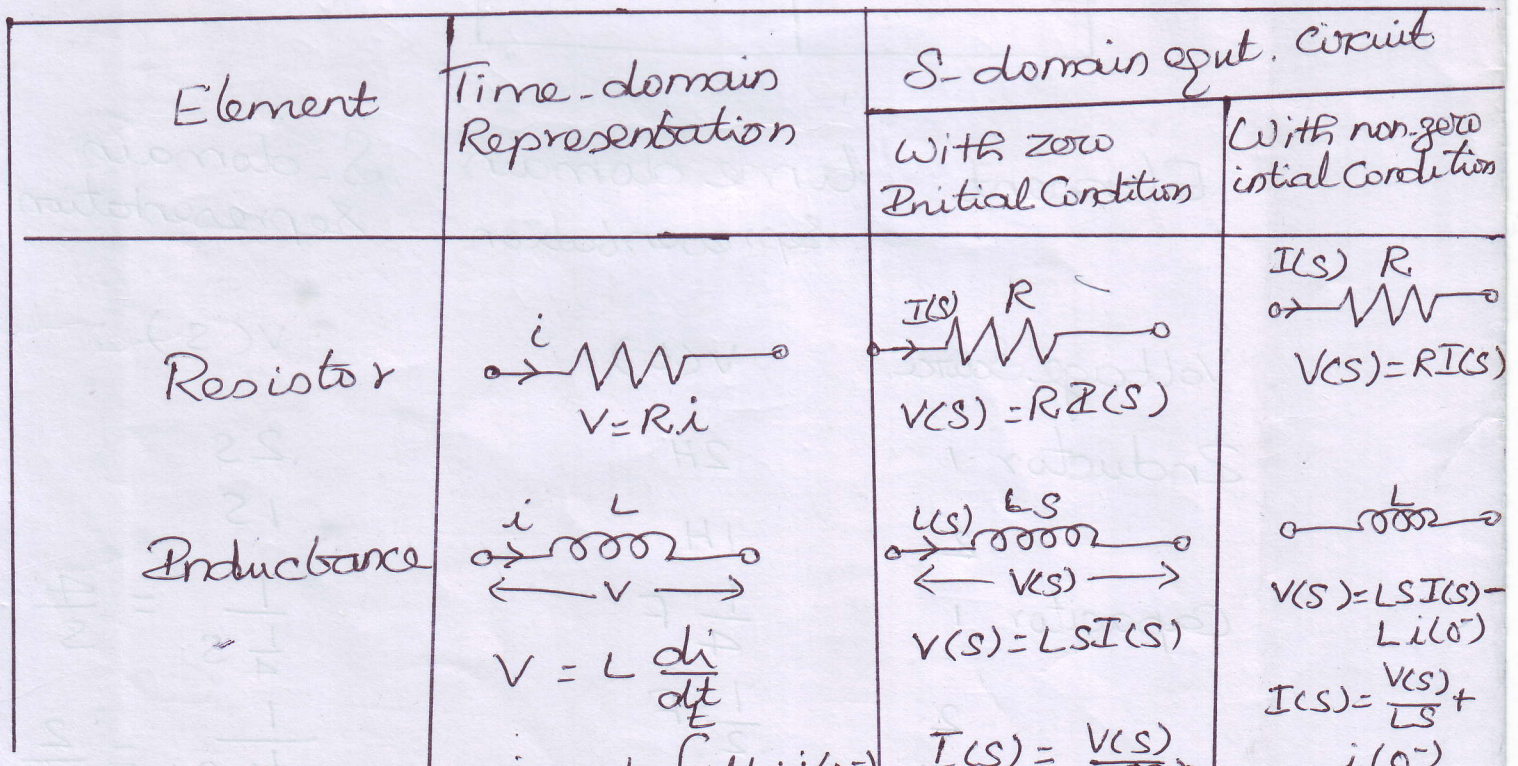 Element
Time-domain
Representation
S-domain equt. Circuit
With zero
Initial Condition
With non-zero
intial Condition
Resistor
i
V=R.i
I(S) R
V(S)=RI(S)
I(S) R
V(S)=RI(S)
Inductance
i L
V
V = L di/dt
I(S) LS
V(S)
V(S)=LSI(S)
I(S) = V(S)
L
V(S)=LSI(S)-
Li(0-)
I(S)= V(S)/LS +
i(0-)